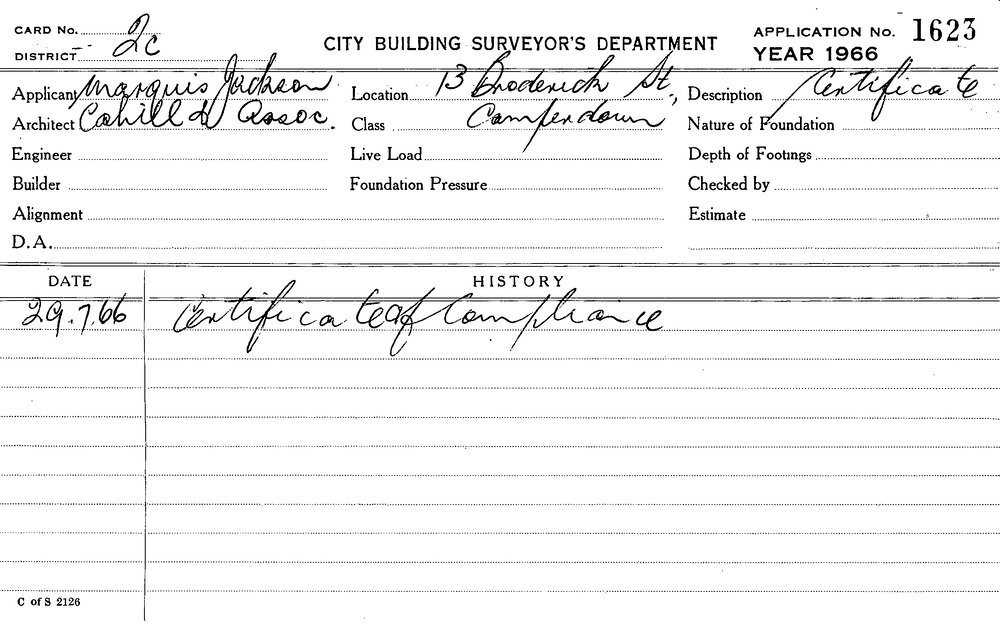 CARD No. 2c
DISTRICT
CITY BUILDING SURVEYOR'S DEPARTMENT
APPLICATION No. 1623
YEAR 1966
Applicant Marquis Jackson
Location 13 Broderick St.,
Description Certificate
Architect Cahill & Assoc.
Class Camperdown
Nature of Foundation
Engineer
Live Load
Depth of Footings
Builder
Foundation Pressure
Checked by
Alignment
Estimate
D.A.
DATE
HISTORY
29.7.66 Certificate of Compliance
C of S 2126